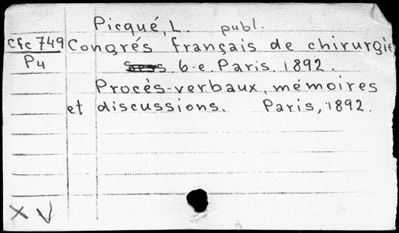 Picqué, L. publ.
Cfc 749 Congrés français de chirurgie
P4 6-e. Paris. 1892.
Procès-verbaux, mémoires
et discussions. Paris, 1892.
X V